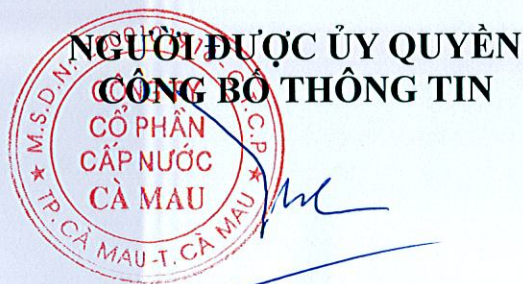 NGƯỜI ĐƯỢC ỦY QUYỀN
CÔNG BỐ THÔNG TIN
M.S.D.N:
C.T.C.P
CÔNG TY
CỔ PHẦN
CẤP NƯỚC
CÀ MAU
TP. CÀ MAU-T. CÀ MAU